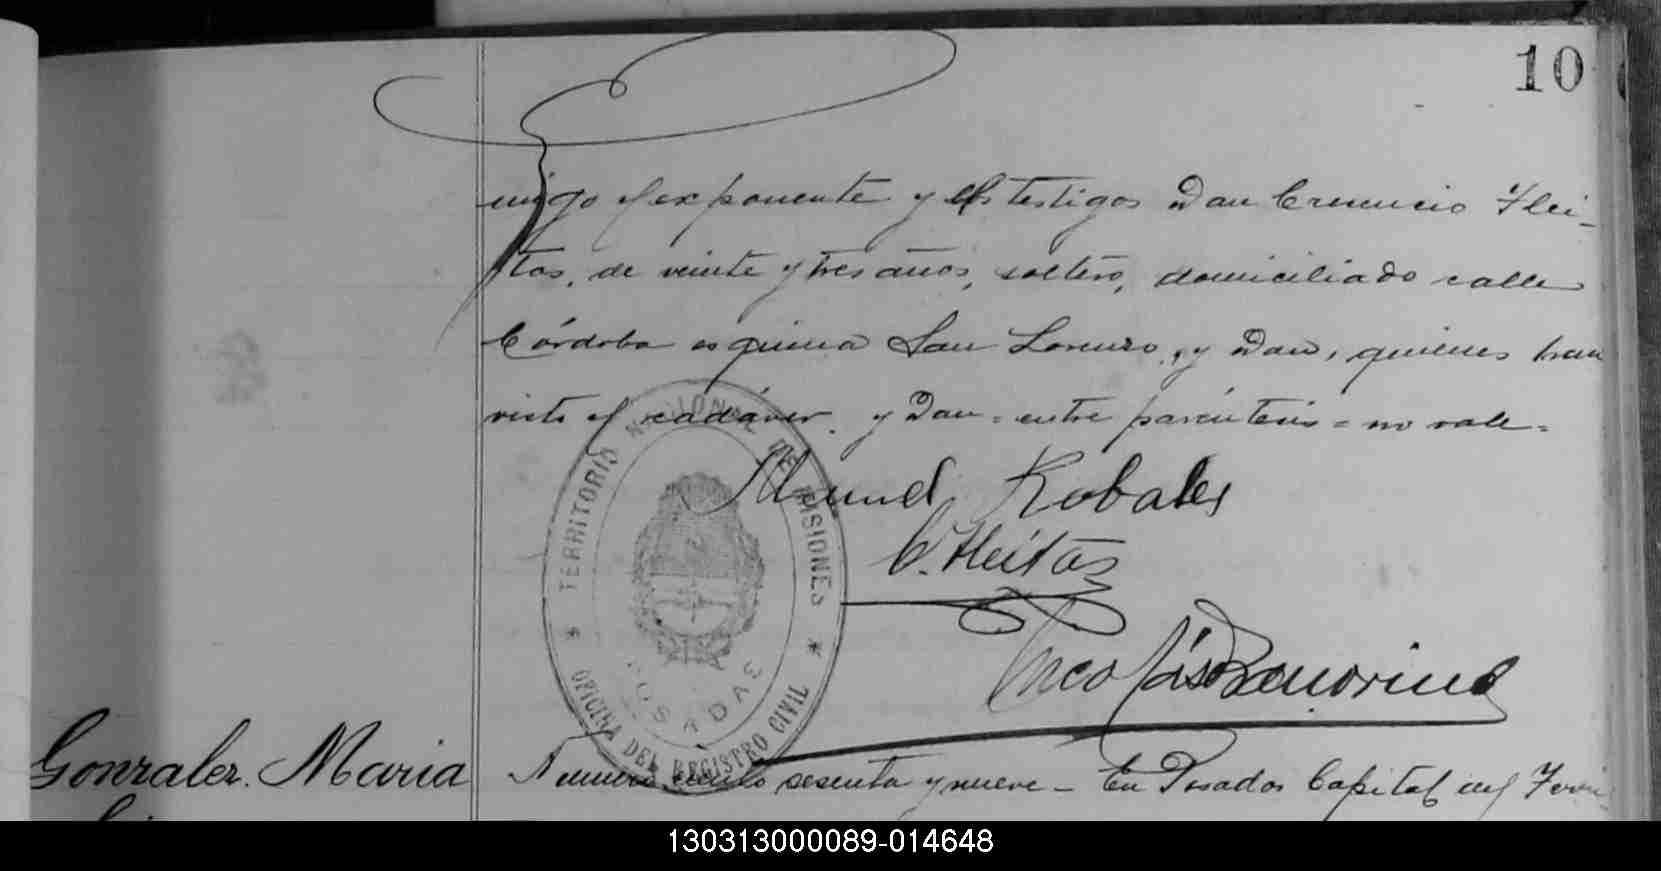 10
migo el exponente y los testigos Don Crecencio Flei-
tas, de veinte y tres años, soltero, domiciliado calle
Córdoba esquina San Lorenzo, y Don, quienes han
visto el cadáver. y Don = entre paréntesis = no vale =
Manuel Robales
C. Fleitas
Nicolás
TERRITORIO NACIONAL DE MISIONES
* OFICINA DEL REGISTRO CIVIL *
POSADAS
Gonzalez. Maria
Numero ciento sesenta y nueve - En Posadas Capital del Terri
130313000089-014648